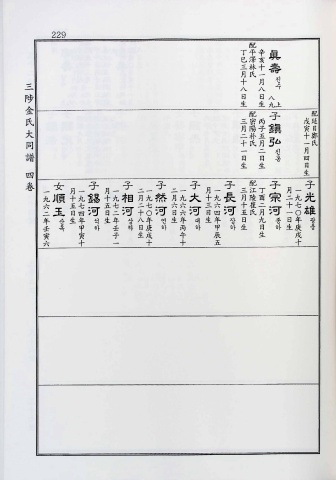 229
三陟金氏大同譜 四卷
眞壽 진수
八上
九
辛亥十一月八日生
配平澤林氏
丁巳三月十八日生
子鎭弘 진홍
丙子五月二日生
配密陽朴氏
三月二十一日生
配延日鄭氏
戊寅十一月四日生
子光雄 광웅
一九七〇年庚戌十
月二十一日生
子宗河 종하
丁酉二月九日生
配江陵崔氏
三月十五日生
子長河 장하
一九六四年甲辰五
月十三日生
子大河 대하
一九六六年丙午十
二月六日生
子然河 연하
一九七〇年庚戌十
二月二十八日生
子相河 상하
一九七二年壬子一
月十五日生
子錫河 석하
一九七四年甲寅十
月十五日生
女順玉 순옥
一九六二年壬寅六